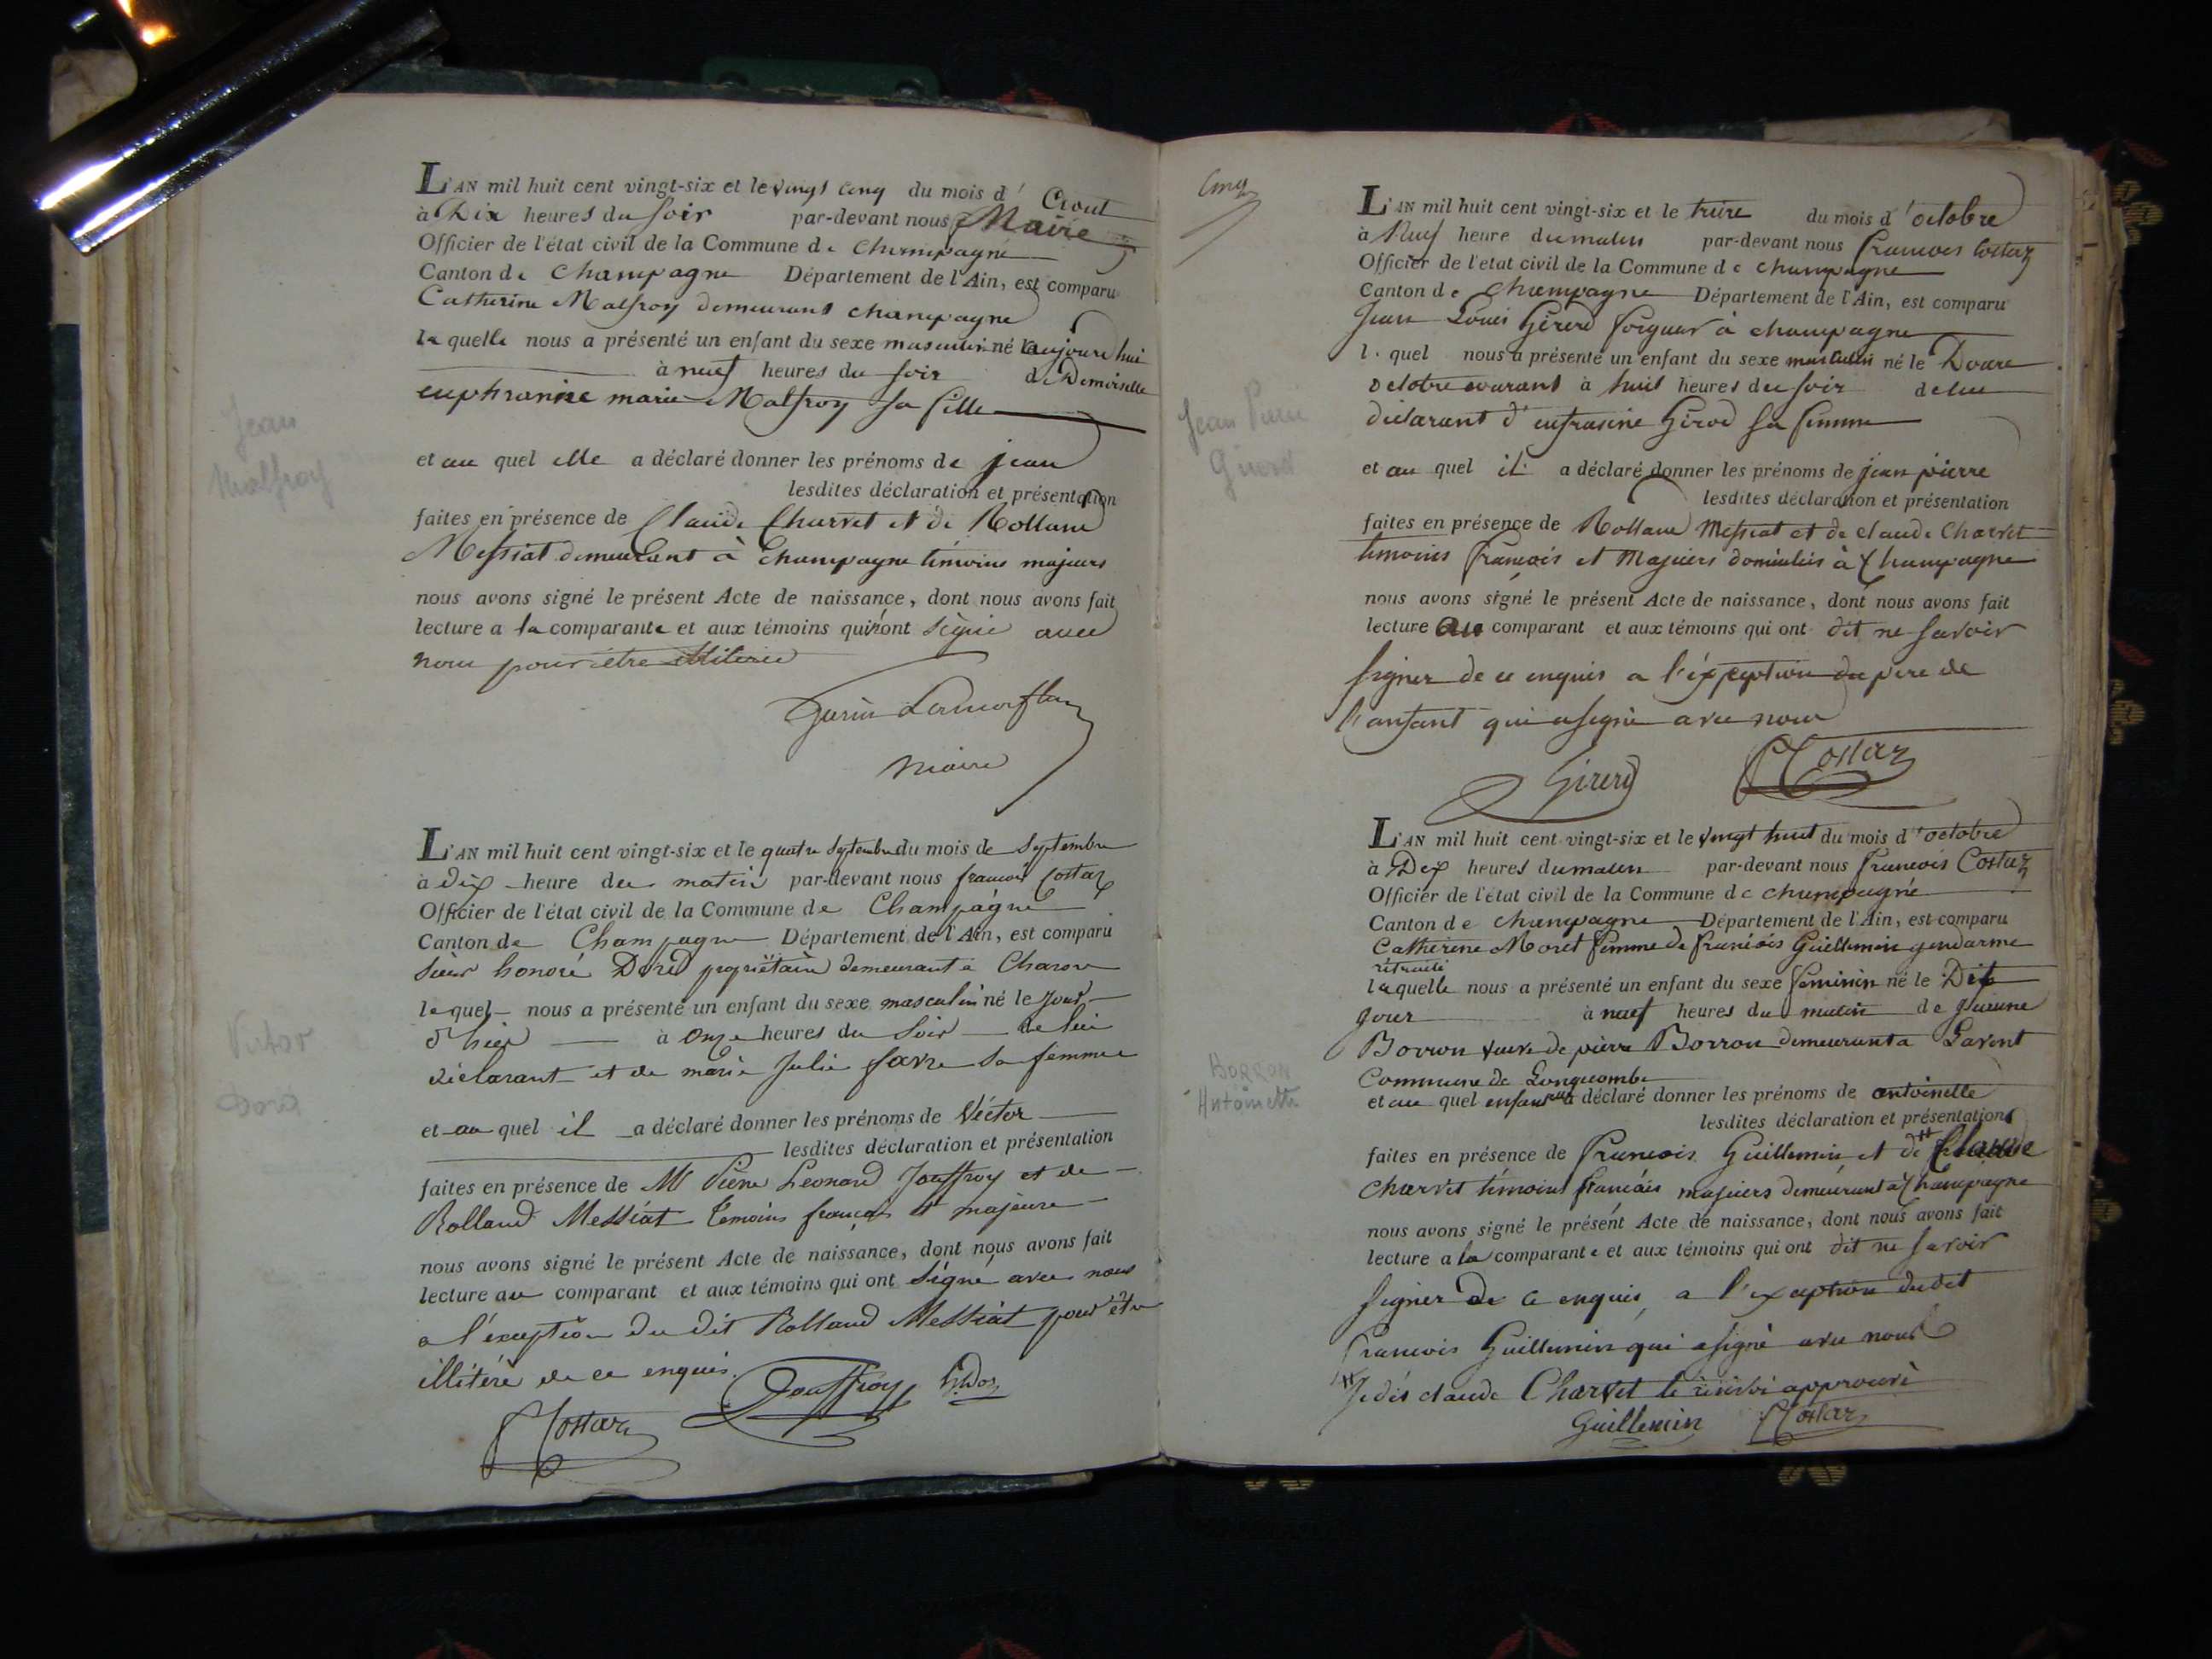 L'AN mil huit cent vingt-six et le vingt cinq du mois d' aout
à Dix heures du soir par-devant nous Maire
Officier de l'état civil de la Commune de champagne
Canton de Champagne Département de l'Ain, est comparu
Catherine Malfroy demeurant champagne
laquelle nous a présenté un enfant du sexe masculin né aujourd'hui
à neuf heures du soir de Demoiselle
euphranise marie Malfroy sa fille
Jean
Malfroy
et au quel elle a déclaré donner les prénoms de jean
lesdites déclaration et présentation
faites en présence de Claude Charvet et de Rolland
Messiat demeurant à Champagne témoins majeurs
nous avons signé le présent Acte de naissance, dont nous avons fait
lecture a la comparante et aux témoins qui ont signé avec
nous pour être illiterée
maire
L'AN mil huit cent vingt-six et le quatre septembre du mois de Septembre
à dix heure du matin par-devant nous francois Costaz
Officier de l'état civil de la Commune de Champagne
Canton de Champagne Département de l'Ain, est comparu
sieur honoré Doré propriétaire demeurant a Charon
lequel nous a présenté un enfant du sexe masculin né le jour
d'hier à onze heures du soir de lui
déclarant et de marie Julie favre sa femme
Victor
Doré
et au quel il a déclaré donner les prénoms de Victor
lesdites déclaration et présentation
faites en présence de Mr Pierre Leonard Jouffroy et de
Rolland Messiat temoins français et majeurs
nous avons signé le présent Acte de naissance, dont nous avons fait
lecture au comparant et aux témoins qui ont signé avec nous
a l'exception du dit Rolland Messiat pour être
illitéré de ce enquis.
Jouffroy
Costaz
Cinq
L'AN mil huit cent vingt-six et le treize du mois d'octobre
à Neuf heure du matin par-devant nous francois Costaz
Officier de l'etat civil de la Commune de champagne
Canton de Champagne Département de l'Ain, est comparu
Jean Louis Girerd à champagne
lequel nous a présenté un enfant du sexe masculin né le Douze
octobre courant à huit heures du soir de lui
déclarant d'eufrasine Girod sa femme
Jean Pierre
Girerd
et au quel il a déclaré donner les prénoms de jean pierre
lesdites déclaration et présentation
faites en présence de Rolland Messiat et de claude Charvet
témoins français et Majeurs domiciliés à Champagne
nous avons signé le présent Acte de naissance, dont nous avons fait
lecture au comparant et aux témoins qui ont dit ne savoir
signer de ce enquis a l'exception du pere de
l'enfant qui a signé avec nous
Girerd Costaz
L'AN mil huit cent vingt-six et le vingt huit du mois d'octobre
à Dix heures du matin par-devant nous francois Costaz
Officier de l'état civil de la Commune de champagne
Canton de champagne Département de l'Ain, est comparu
Catherine Moret femme de francois Guillemin gendarme
retraité
laquelle nous a présenté un enfant du sexe feminin né le Dit
jour à neuf heures du matin de
Borron veuve de pierre Borron demeurant a Lavent
Commune de Longecombe
BORRON
Antoinette
et au quel enfant a déclaré donner les prénoms de antoinette
lesdites déclaration et présentation
faites en présence de francois Guillemin et de Claude
Charvet témoins français majeurs demeurant à Champagne
nous avons signé le présent Acte de naissance, dont nous avons fait
lecture a la comparante et aux témoins qui ont dit ne savoir
signer de ce enquis, a l'exception dudit
francois Guillemin qui a signé avec nous
claude Charvet approuvé
Guillemin Costaz